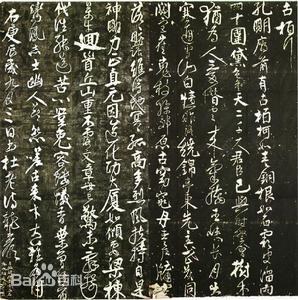 古柏行
孔明廟前有古柏柯如青銅根如石霜皮溜雨
四十圍黛色參天二千尺君臣已與時際會樹木
猶為人愛惜雲來氣接巫峽長月出
寒通雪山白憶昨路繞錦亭東先主武侯同
閟宮崔嵬枝幹郊原古窈窕丹青戶牖空落
落盤踞雖得地冥冥孤高多烈風扶持自是
神明力正直元因造化功大廈如傾要梁棟
萬牛迴首丘山重不露文章世已驚未辭翦
伐誰能送苦心豈免容螻蟻香葉終經宿
鸞鳳志士幽人莫怨嗟古來材大難為用
右庚辰歲九月三日書杜老詩龍巖
Bai百科